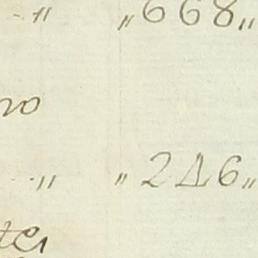 „ „668„
no
„ „246„
te,